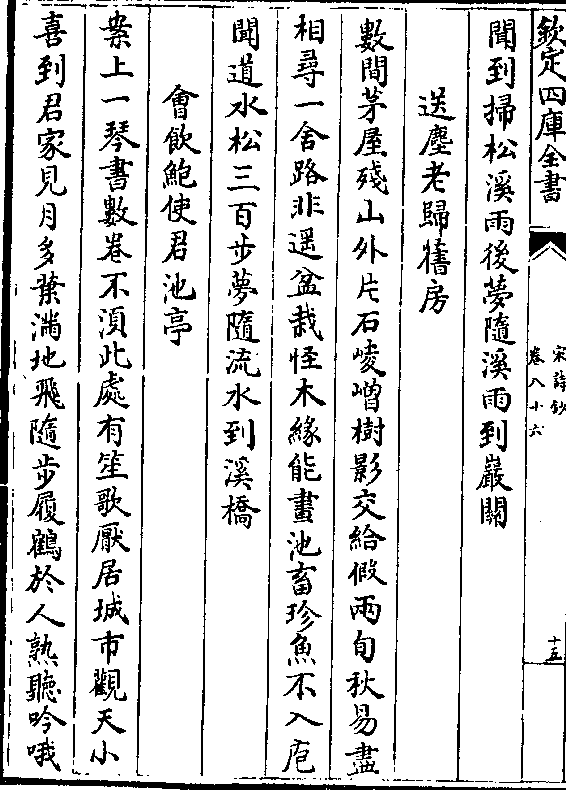 欽定四庫全書
宋詩鈔
卷八十六
十五
聞到掃松溪雨後夢隨溪雨到巖關
送塵老歸舊房
數間茅屋殘山外片石崚嶒樹影交給假兩旬秋易盡
相尋一舍路非遥盆栽怪木緣能畫池畜珍魚不入庖
聞道水松三百步夢隨流水到溪橋
會飲鮑使君池亭
桒上一琴書數卷不湏此處有笙歌厭居城市觀天小
喜到君家見月多葉滿地飛隨步履鶴於人熟聽吟哦